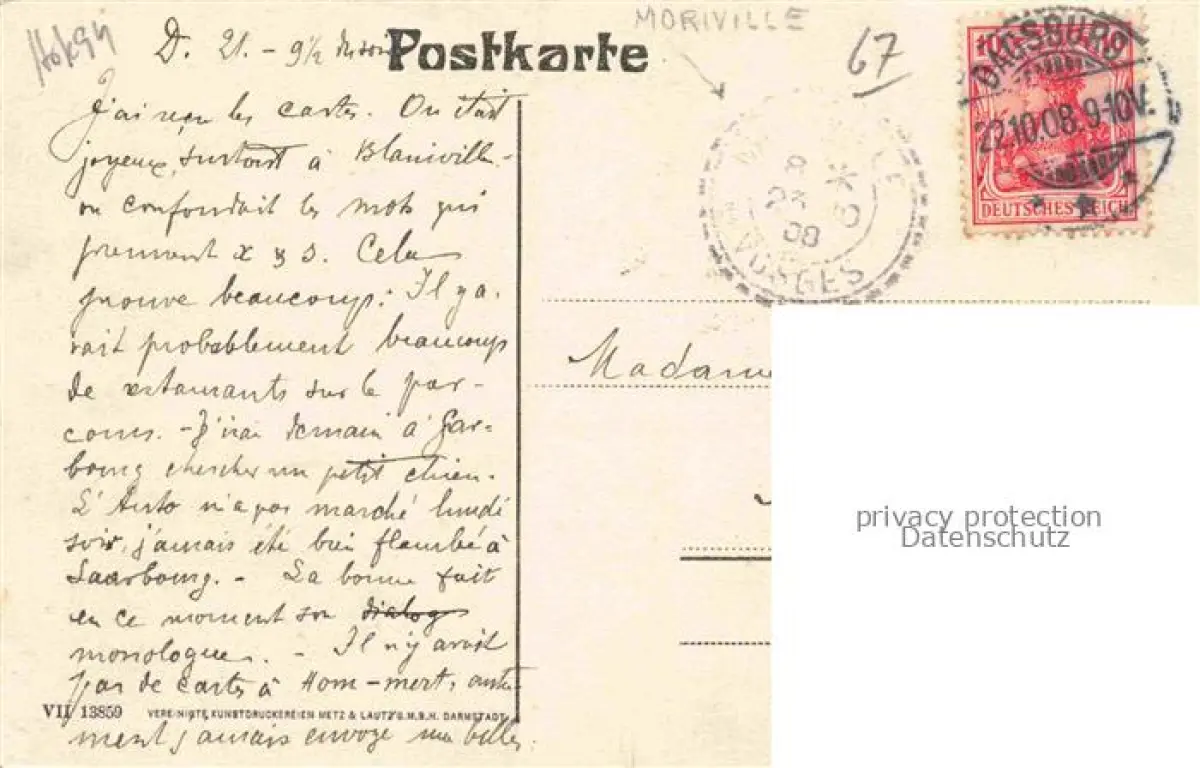 Hohegy
MORIVILLE
67
D. 21. - 9½ du soir
Postkarte
DAGSBURG
22.10.08.9-10V.
DEUTSCHES REICH
23
08
VOSGES
J'ai reçu les cartes. On était
joyeux, surtout à Blainville -
on confondait les mots qui
prennent x & s. Cela
prouve beaucoup: Il y a-
vait probablement beaucoup
de restaurants sur le par-
cours. - J'irai demain à Gar-
bourg chercher un petit chien.
L'Auto n'a pas marché lundi
soir, j'aurais été bien flambé à
Saarbourg. - La bonne fait
en ce moment son dialogue
monologue. - Il n'y avait
pas de cartes à Hom-mert, autre-
ment j'aurais envoyé une belle.
VII 13859 VEREINIGTE KUNSTDRUCKEREIEN METZ & LAUTZ G.M.B.H. DARMSTADT
Madame
privacy protection
Datenschutz